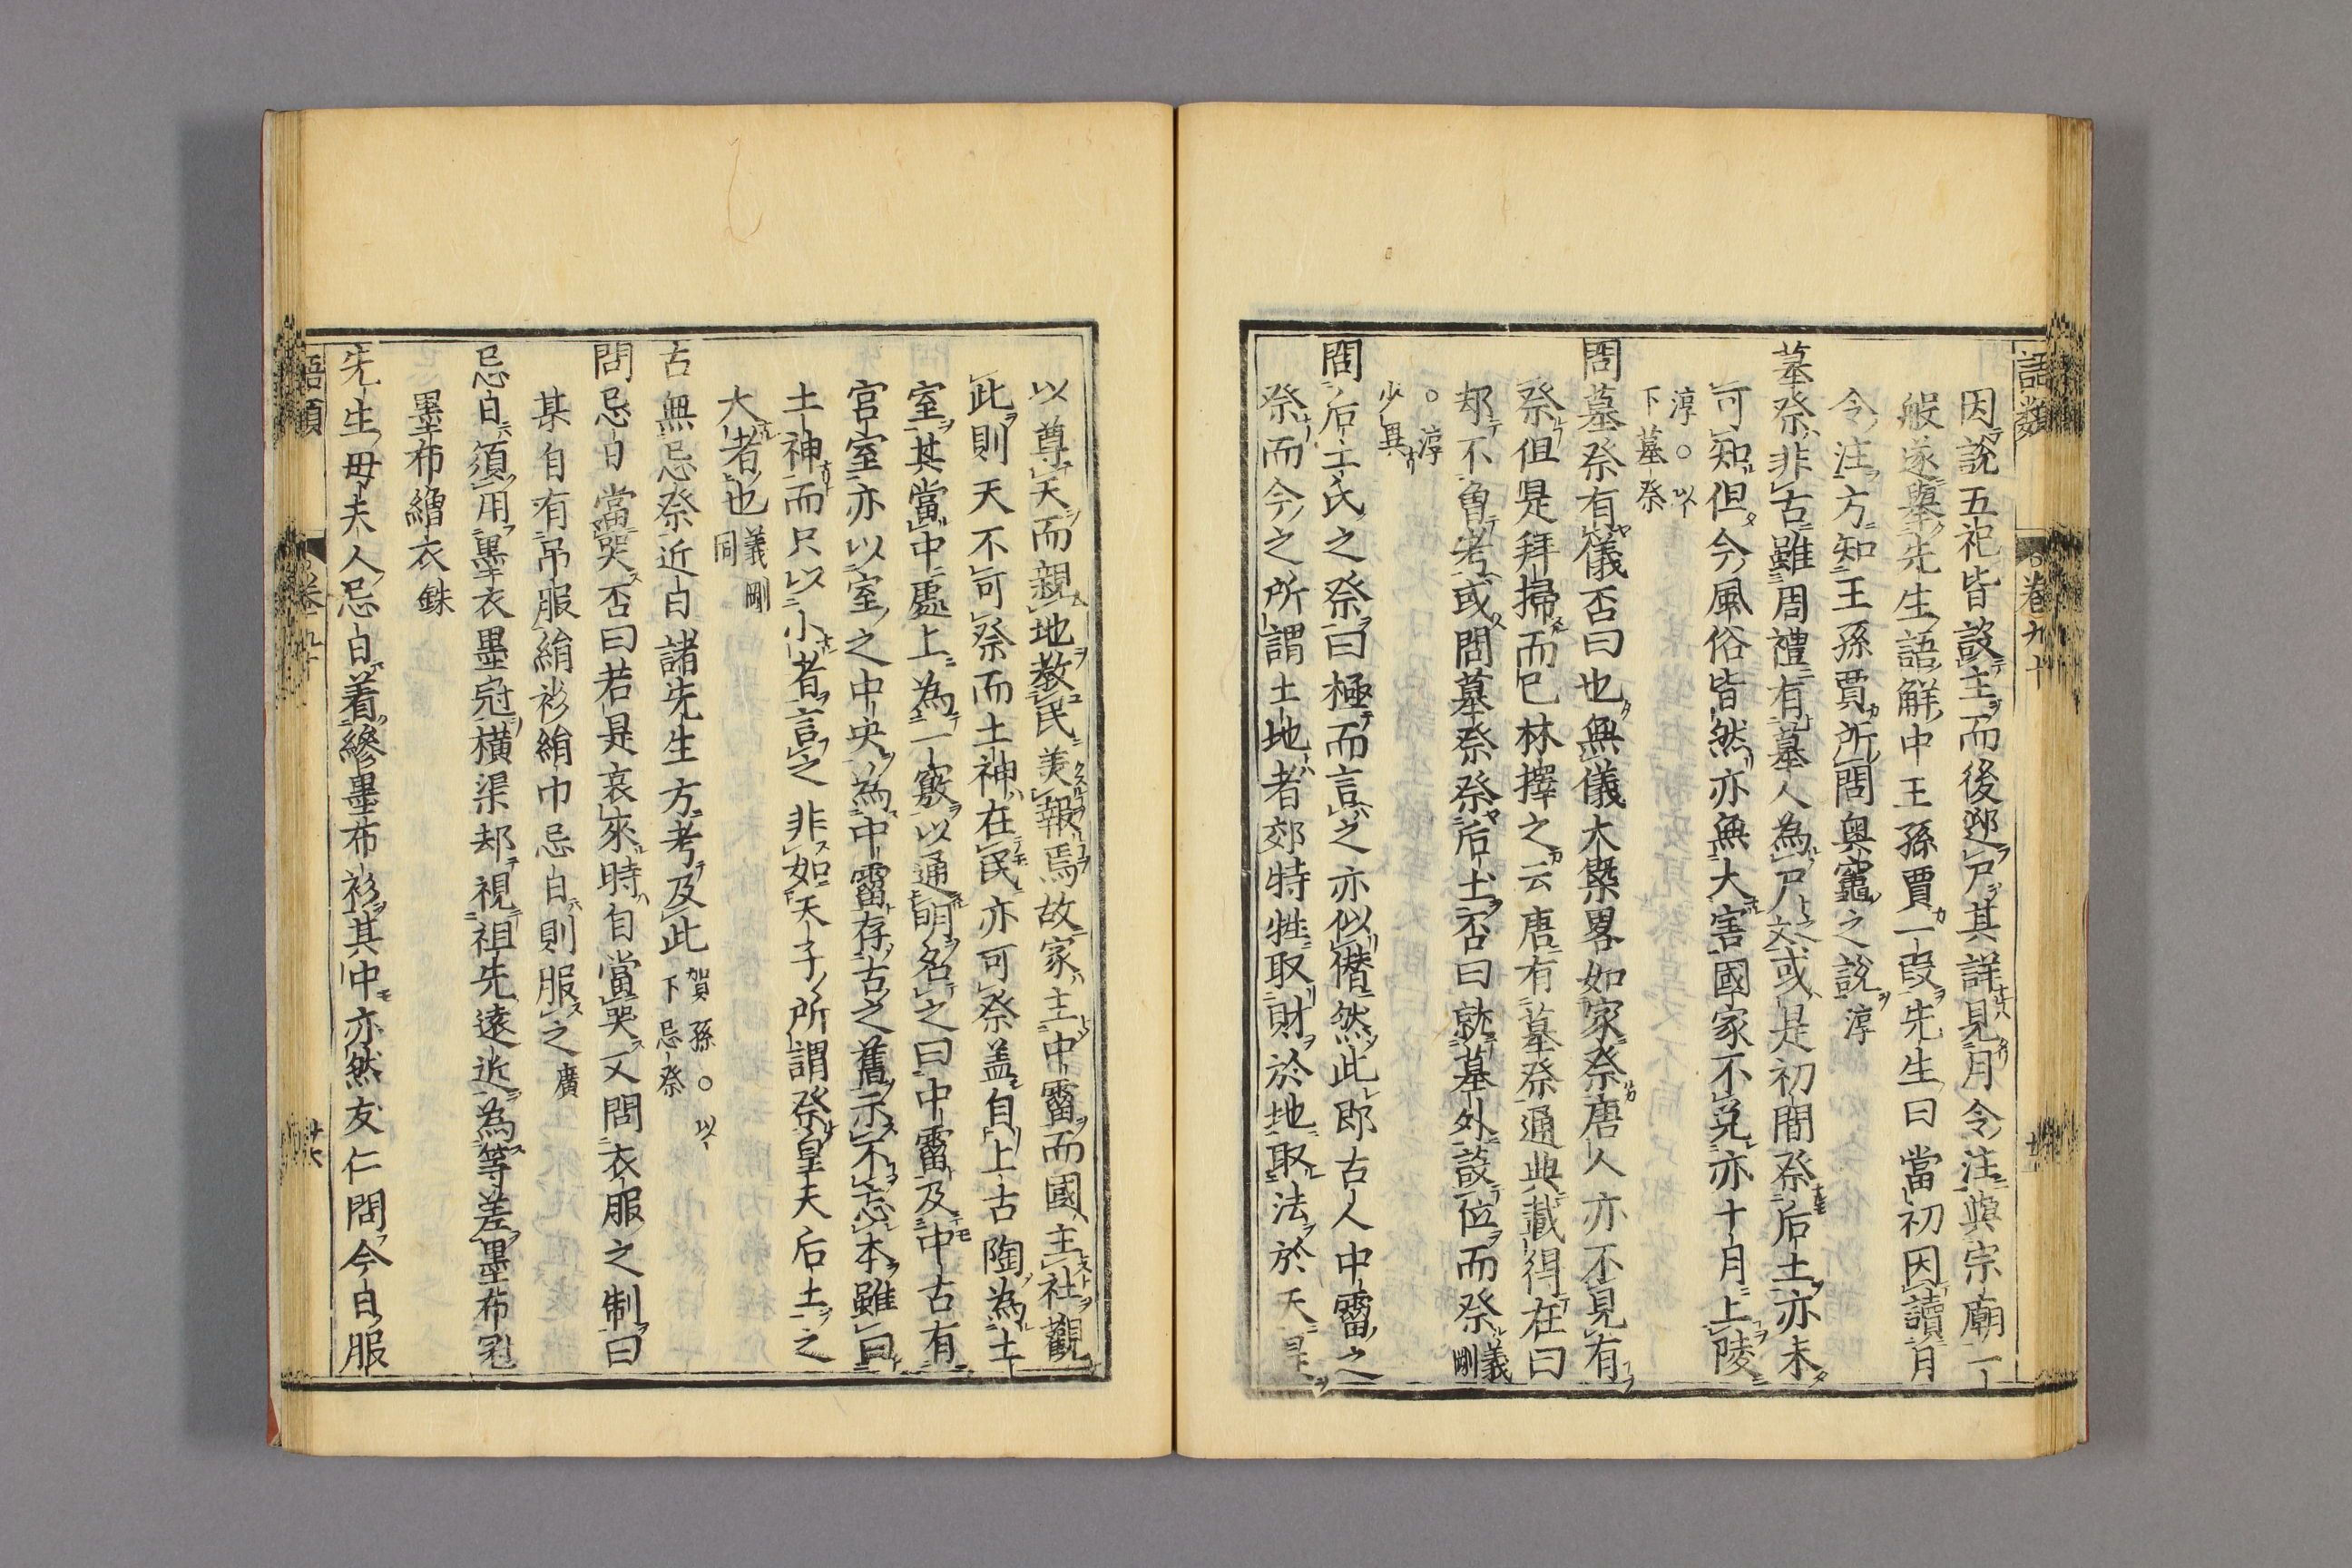 語類 卷九十
因說五祀皆設主而後迎尸其詳見月令注與宗廟一
般遂擧先生語解中王孫賈一段先生曰當初因讀月
令注方知王孫賈所問奧竈之說淳
墓祭非古雖周禮有墓人為尸之文或是初間祭后土亦未
可知但今風俗皆然亦無大害國家不免亦十月上陵
淳○以
下墓祭
問墓祭有儀否曰也無儀大槩畧如家祭唐人亦不見有
祭但是拜掃而已林擇之云唐有墓祭通典載得在曰
却不曾考或問墓祭祭后土否曰就墓外設位而祭義剛
○淳
少異
問后土氏之祭曰極而言之亦似僭然此即古人中霤之
祭而今之所謂土地者郊特牲取財於地取法於天是
以尊天而親地教民美報焉故家主中霤而國主社觀
此則天不可祭而土神在民亦可祭盖自上古陶為土
室其當中處上為一竅以通明名之曰中霤及中古有
宮室亦以室之中央為中霤存古之舊示不忘本雖曰
土神而只以小者言之非如天子所謂祭皇天后土之
大者也義剛同
古無忌祭近日諸先生方考及此賀孫○以下忌祭
問忌日當哭否曰若是哀來時自當哭又問衣服之制曰
某自有吊服絹衫絹巾忌日則服之廣
忌日須用墨衣墨冠橫渠却視祖先遠近為等差墨布冠
墨布繒衣銖
先生母夫人忌日着縿墨布衫其中亦然友仁問今日服
語類 卷九十